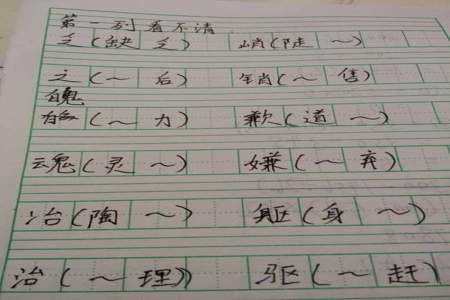 第一列看不清
乏(缺乏) 峭(陡~)
之(~后) 销(~售)
魄
(~力) 歉(道~)
魂(灵~) 嫌(~弃)
冶(陶~) 躯(身~)
治(~理) 驱(~赶)